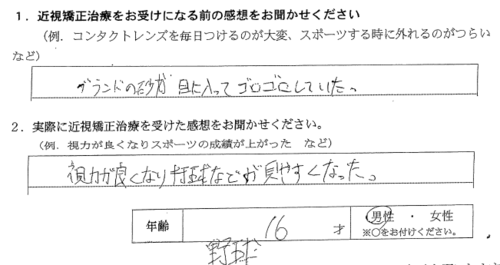 １．近視矯正治療をお受けになる前の感想をお聞かせください
（例．コンタクトレンズを毎日つけるのが大変、スポーツする時に外れるのがつらい
など）
グランドの砂が目に入ってゴロゴロしていた。
２．実際に近視矯正治療を受けた感想をお聞かせください。
（例．視力が良くなりスポーツの成績が上がった　など）
視力が良くなり打球などが見やすくなった。
年齢　16　才　男性 ・ 女性
※○をお付けください。
野球